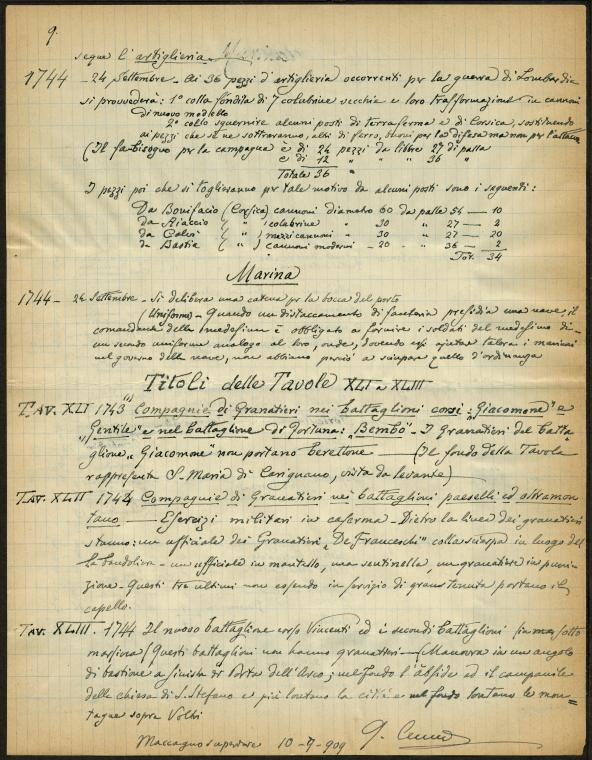 9.
segue l'artiglieria
1744 - 24 Settembre - Ai 36 pezzi d'artiglieria occorrenti per la guerra di Lombardia
si provvederà: 1° colla fondita di 7 colubrine vecchie e loro trasformazione in cannoni
di nuovo modello
2° collo sguernire alcuni posti di terraferma e di Corsica, sostituendo
ai pezzi che se ne sottrarranno, altri di ferro, buoni per la difesa ma non per l'attacco
(Il fabbisogno per la campagna è di 24 pezzi da libbre 27 di palla
e di 12 " " " 36 "
Totale 36 "
I pezzi poi che si toglieranno per tale motivo da alcuni posti sono i seguenti:
Da Bonifacio (Corsica) cannoni diametro 60 da palla 54 — 10
da Ajaccio ( " ) colubrine " 30 " 27 — 2
da Calvi ( " ) mezzi cannoni " 30 " 27 — 20
da Bastia ( " ) cannoni moderni - 20 - " 36 — 2
Tot. 34
Marina
1744 - 24 Settembre - Si delibera una catena per la bocca del porto
(Uniforme) - Quando un distaccamento di fanteria presidia una nave, il
comandante della medesima è obbligato a fornire i soldati del medesimo di
un secondo uniforme analogo al loro, onde, dovendo essi ajutare talora i marinai
nel governo della nave, non abbiano perciò a sciupare quello d'ordinanza
Titoli delle Tavole XLI a XLIII
TAV. XLI 1743 Compagnie di Granatieri nei battaglioni corsi: "Giacomone" e
"Gentile" e nel battaglione di fortuna: "Bembo" - I Granatieri del batta
glione "Giacomone" non portano berettone — (Il fondo della Tavola
rappresenta S. Maria di Carignano, vista da levante)
TAV. XLII 1744 Compagnie di Granatieri nei battaglioni paeselli ed oltramon
tano — Esercizi militari in caserma - Dietro la linea dei granatieri
stanno: un ufficiale dei Granatieri "De Franceschi" colla sciarpa in luogo del
la bandoliera - un ufficiale in mantello, una sentinella, un granatiere in puni
zione - Questi tre ultimi non essendo in servizio di gran tenuta portano il
capello.
TAV. XLIII. 1744 Il nuovo battaglione corso Vincenti ed i secondi battaglioni
(Questi battaglioni non hanno granatieri — (Manovra in un angolo
di bastione a sinistra di Porta dell'Arco; nel fondo l'abside ed il campanile
della chiesa di S. Stefano e più lontano la città e nel fondo lontano le mon=
tagne sopra Voltri
Maccagno superiore 10-9-909 Q. Cenni